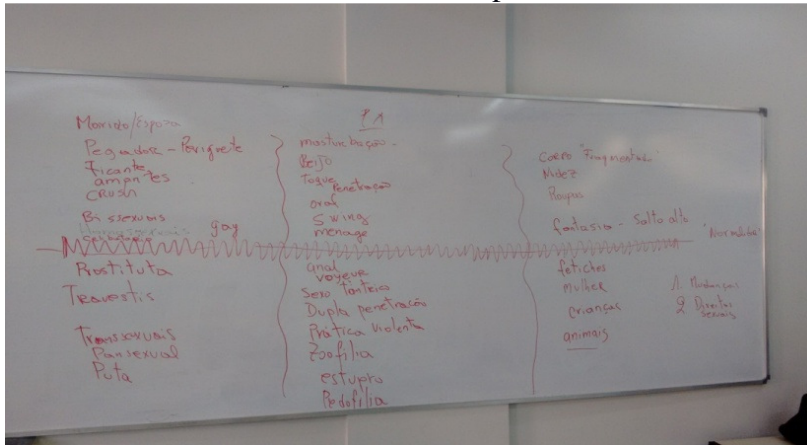 P1
Marido/Esposa
Pegador - Periguete
Ficante
amantes
CRUSH
Bissexuais
gay
Prostituta
Travestis
Transsexuais
Pansexual
Puta
masturbação -
Beijo
Toque
Penetração
oral
Swing
menage
anal
voyeur
Sexo Tântrico
Dupla penetração
Prática Violenta
Zoofilia
estupro
Pedofilia
Corpo "Fragmentos"
Nudez
Roupas
fantasia - Salto alto
fetiches
mulher
crianças
animais
1. Mudanças
2 Direitos
sexuais